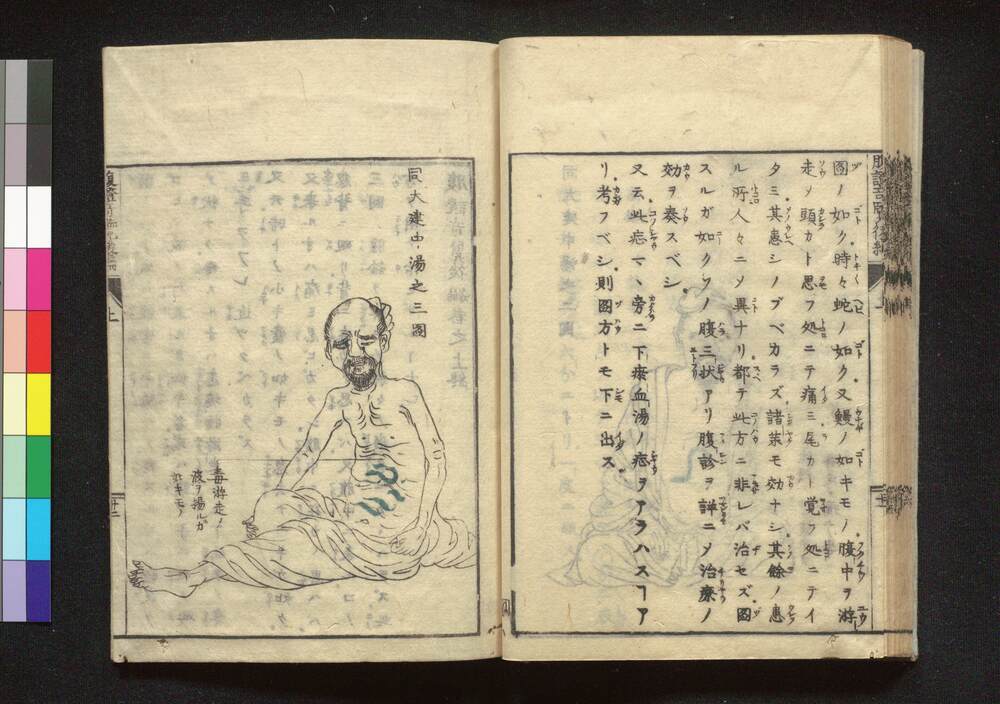 圖ノ如ク時々蛇ノ如ク又鰻ノ如キモノ腹中ヲ游
走メ頭カト思フ処ニテ痛ミ尾カト覚フ処ニテイ
タミ其惠シノブベカラズ諸薬モ効ナシ其餘ノ患
ル所人々ニメ異ナリ都テ此方ニ非レバ治セズ圖
スルガ如クソノ腹三状アリ腹診ヲ詳ニメ治療ノ
効ヲ奏スベシ
又云此症ヿ、旁ニ下瘀血湯ノ症ヲアラハスヿア
リ考フベシ則圖方トモ下ニ出ス
同大建中湯之三圖
毒游走メ
波ヲ揚ルガ
如キモノ
上
十二